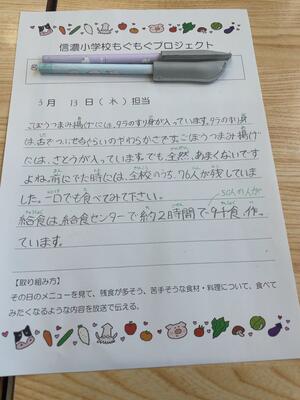 信濃小学校もぐもぐプロジェクト
3月 13日(木)担当
ごぼうつまみ揚げには、タラのすり身が入っています。タラのすり身
は舌でつぶせるくらいのやわらかさです。ごぼうつまみ揚げ
には、さとうが入っています。でも、全然、あまくないです
よね。前にでた時には、全校のうち、76人が残していま
した。一口でも食べてみて下さい。
50人の人が
給食は、給食センターで約2時間で作
ています。
【取り組み方】
その日のメニューを見て、残食が多そう、苦手そうな食材・料理について、食べて
みたくなるような内容を放送で伝える。